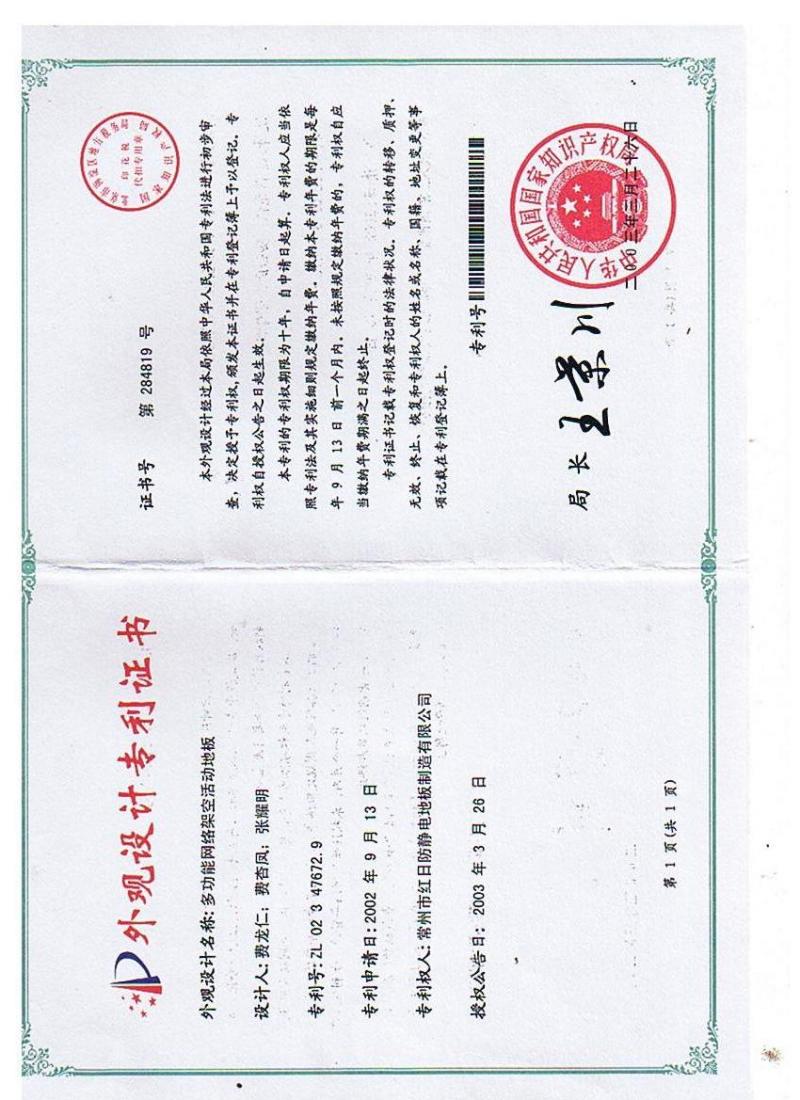 外观设计专利证书
外观设计名称:多功能网络架空活动地板
设计人:费龙仁;费杏凤;张耀明
专利号:ZL 02 3 47672.9
专利申请日:2002 年 9 月 13 日
专利权人:常州市红日防静电地板制造有限公司
授权公告日:2003 年 3 月 26 日
第 1 页(共 1 页)
证书号 第 284819 号
本外观设计经过本局依照中华人民共和国专利法进行初步审
查,决定授予专利权,颁发本证书并在专利登记簿上予以登记。专
利权自授权公告之日起生效。
本专利的专利权期限为十年,自申请日起算。专利权人应当依
照专利法及其实施细则规定缴纳年费。缴纳本专利年费的期限是每
年 9 月 13 日 前一个月内。未按照规定缴纳年费的,专利权自应
当缴纳年费期满之日起终止。
专利证书记载专利权登记时的法律状况。专利权的转移、质押、
无效、终止、恢复和专利权人的姓名或名称、国籍、地址变更等事
项记载在专利登记簿上。
专利号
局长 王景川
中华人民共和国国家知识产权局
二00三年三月二十六日
印花税
代扣专用章